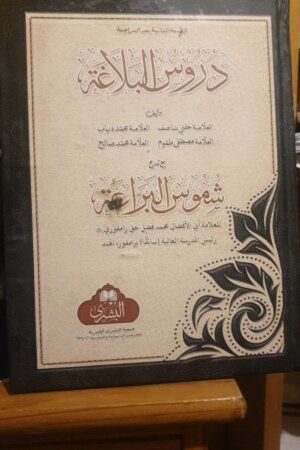 الطبعة الثانية بعد المراجعة
دروس البلاغة
تأليف
العلامة حفني ناصف العلامة محمد دياب
العلامة مصطفى طموم العلامة محمد صالح
مع شرح
شموس البراعة
للعلامة أبي الأفضال محمد فضل حق رامفوري
رئيس المدرسة العالية (سابقًا) برامفور، الهند
البشرى